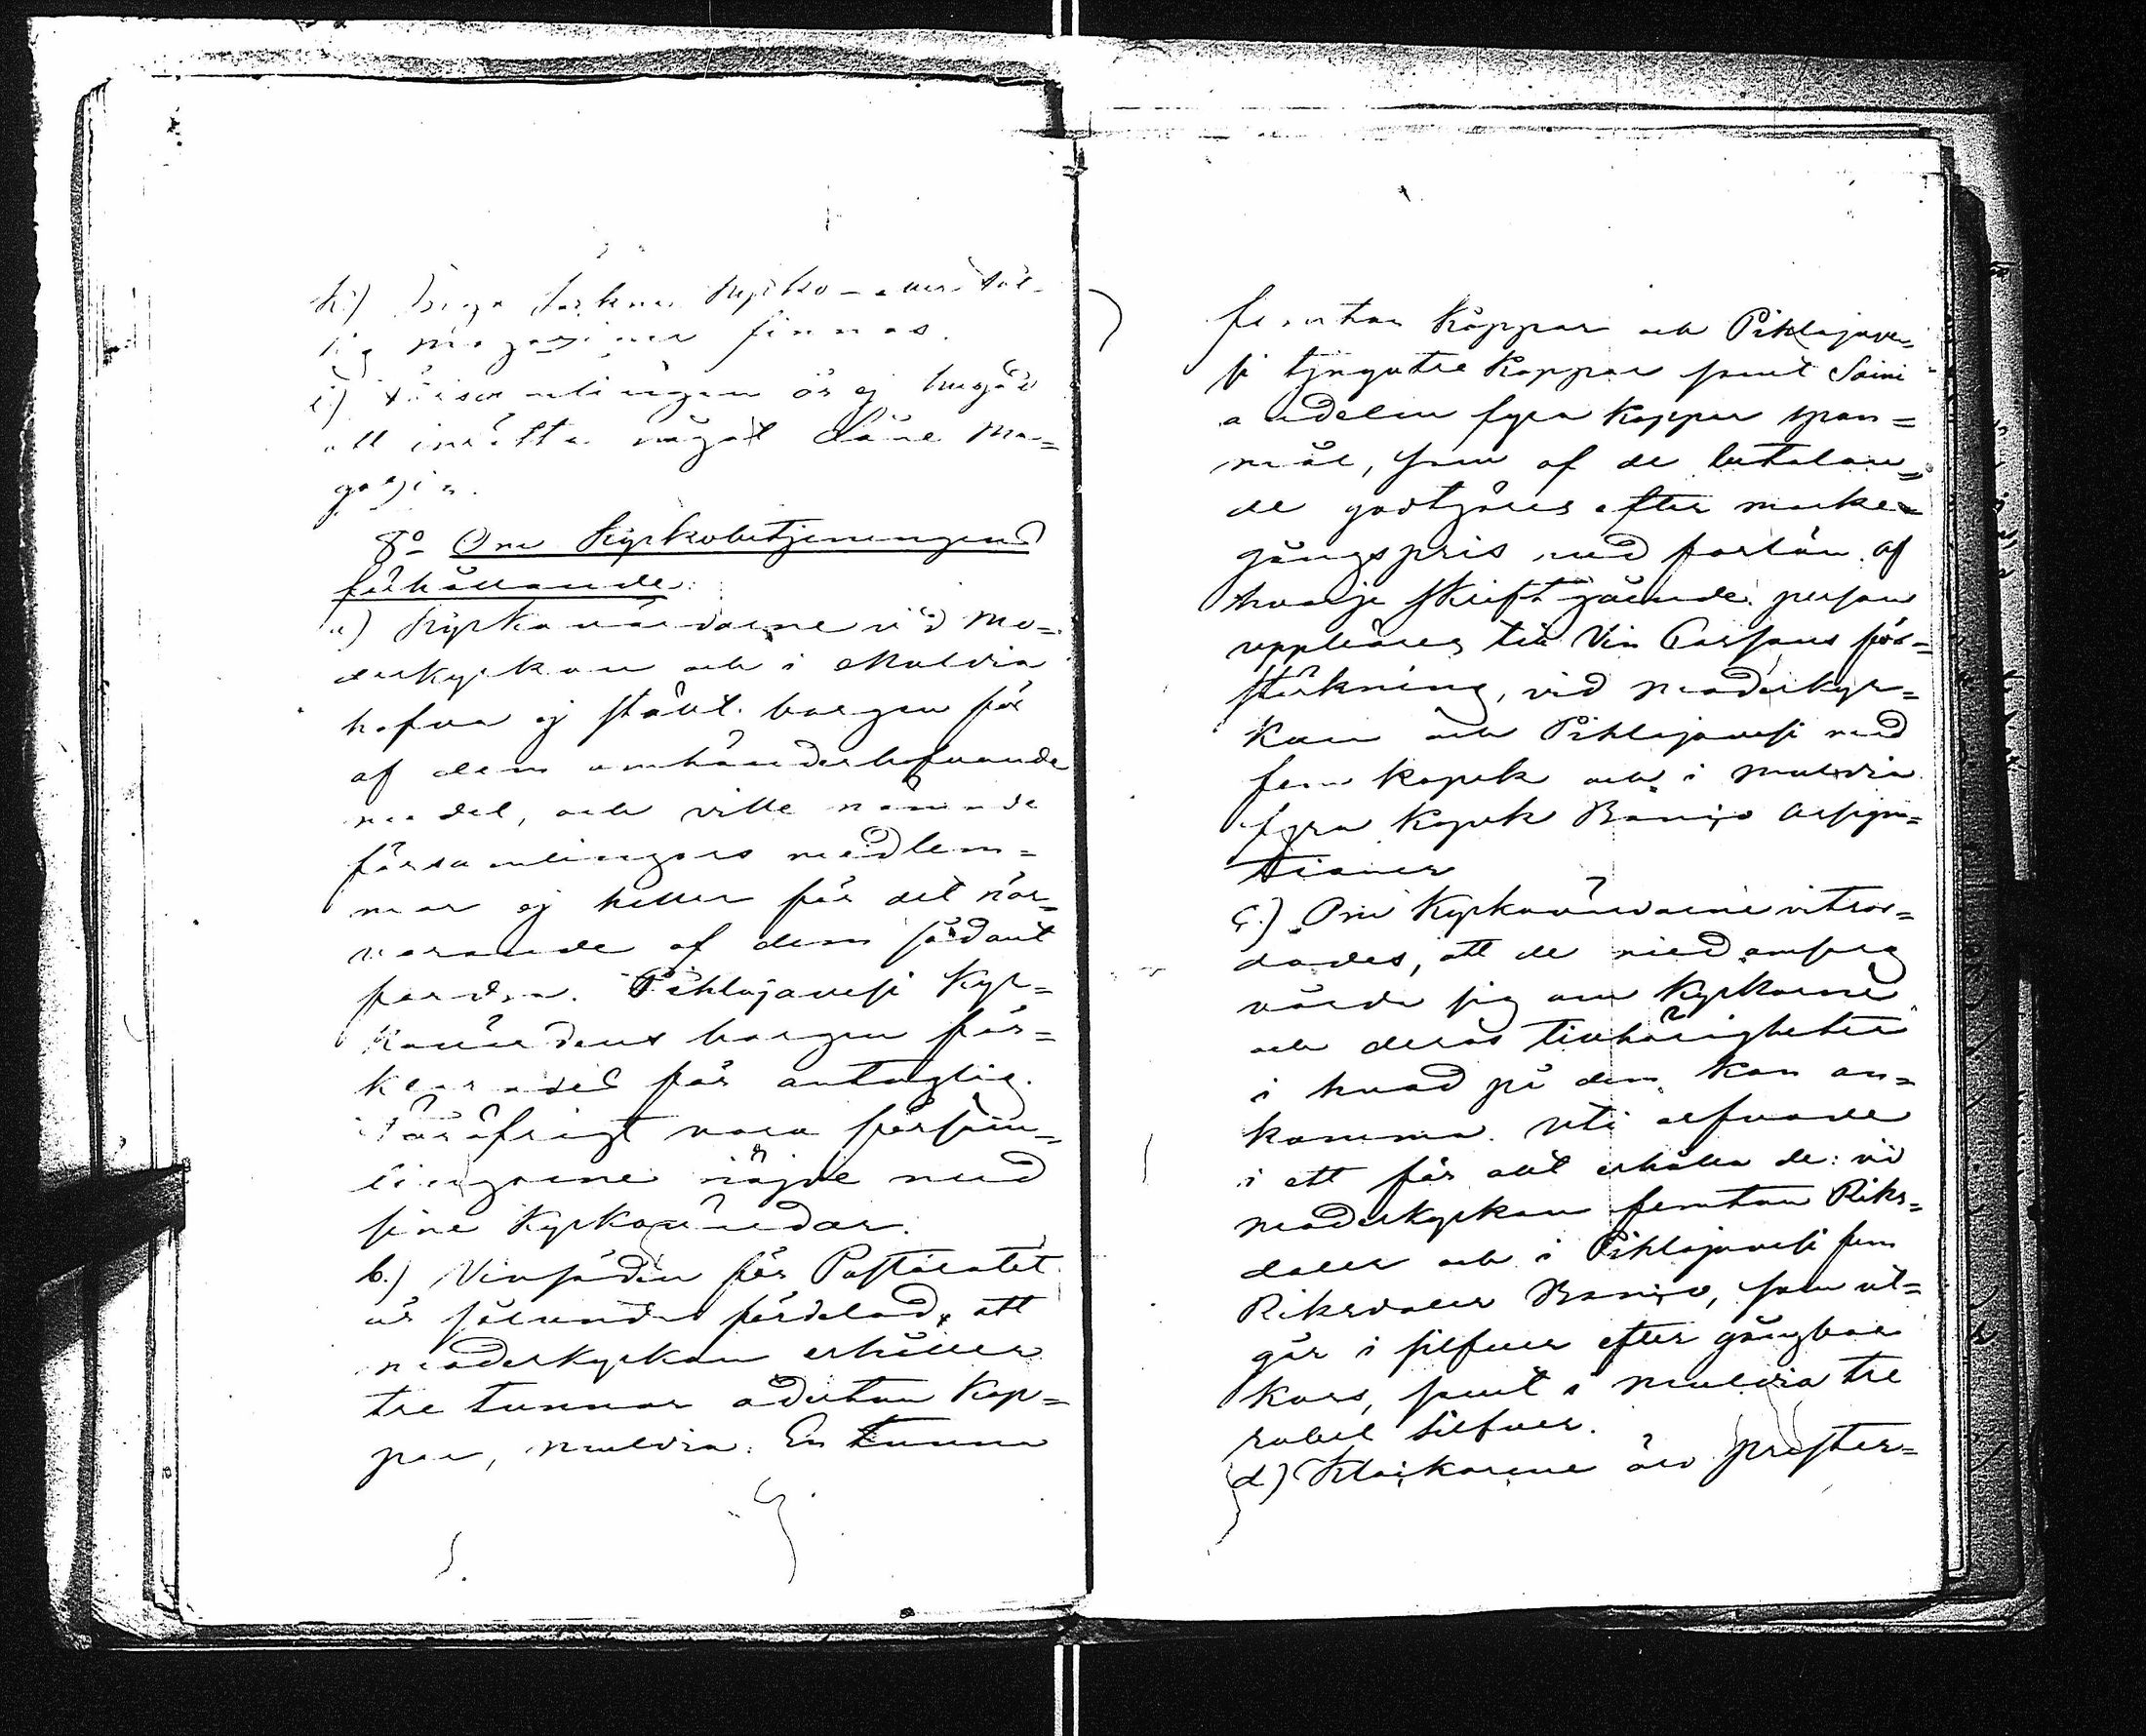 h.) Inga Sockne kyrko- eller
magaziner finnas.
i) Församlingen är ej hugad
att inrätta något Låne Ma=
gazin.
8º Om Kyrkobetjeningens
förhållande:
a) Kyrkovärdarne vid Mo=
derkyrkan och i Multia
hafva ej ställt borgen för
af dem omhänderhafvande
medel, och ville nämnde
församlingars medlem=
mar ej heller för det när=
varande af dem sådant
fordra. Pihlajavesi Kyr=
kovärdens borgen för=
klarades för antaglig.
För öfrigt voro församm=
lingarne nöjde med
sine Kyrkovärdar.
b.) Vinsäden för Pastoratet
är sålunda fördelad, att
moderkyrkan erhåller
tre tunnor aderton Kap=
par, Multia: En tunna
femton Kappar och Pihlajave=
si tjugutre Kappar samt Saini
andelen fyra Kappar span=
mål, som af de betalan=
de godtgöres efter marke=
gångspris, med forlön af
hvarje skriftgående person
uppbäres till Vin Cassans för=
stärkning, vid moderkyr=
kan och Pihlajavesi med
fem kopek och i Multia
fyra kopek Banco Assigna=
tioner
c.) Om Kyrkovärdarne vitsor=
dades, att de med omsorg
vårda sig om Kyrkorne
och deras tillhörigheter
i hvad på dem kan an=
komma. Uti arfvode
i ett för allt erhålla de: vid
moderkyrkan femton Riks=
daler och i Pihlajavesi fem
Riksdaler Banco, som ut=
går i silfver efter gångbar
kurs, samt i Multia tre
rubel silfver.
d) Klockarene äro prester=